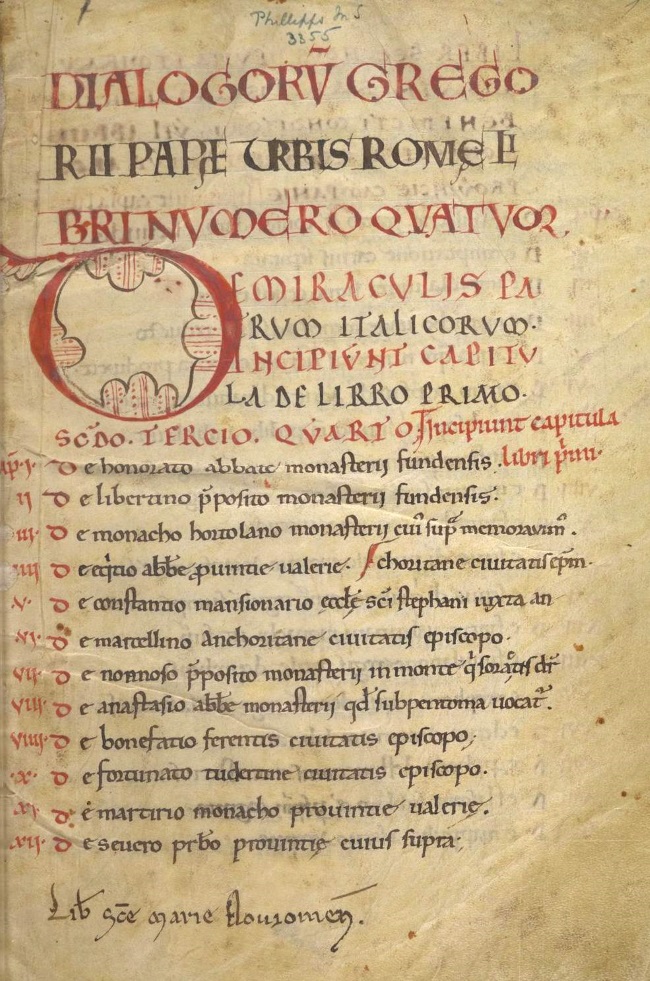 Phillipps MS
3355
DIALOGORŪ GREGO
RII PAPĘ URBIS ROMĘ LI
BRI NUMERO QVATVOR.
DE MIRACVLIS PA
TRVM ITALICORVM.
INCIPIVNT CAPITV
LA DE LIBRO PRIMO.
SCDO. TERCIO. QVARTO. Incipiunt capitula
libri p̄mi.
Cap̄. I. De honorato abbate monasterii fundensis.
II De libertino p̄posito monasterii fundensis.
III De monacho hortolano monasterii cui' sup̄ memoravim'.
IIII De eq̄tio abbe ꝓvintie valerie.
V. De constantio mansionario ecclę sci stephani iuxta an
choritane civitatis ep̄m.
VI. De martellino anchoritane civitatis episcopo.
VII De nonnoso p̄posito monasterii in monte q̄ soractis dr̄
VIII De anastasio abbe monasterii qd subpentoma vocat̄.
VIIII De bonefatio ferentis civitatis episcopo;
X. De fortunato tudertine civitatis episcopo.
XI De martirio monacho provintie valerię.
XII De severo prbo provintię cuius supra;
Lib sce marie